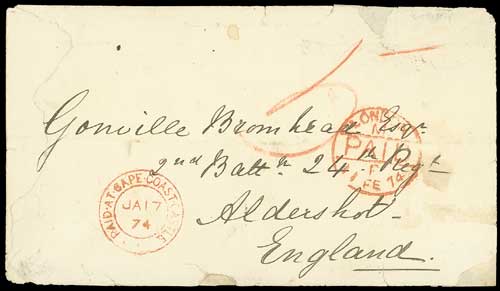 5
Gonville Bromhead Esqr.
2nd Battn 24th Regt
Aldershot
England.
PAID-AT-CAPE-COAST-CASTLE
JA 17
74
LONDON
PAID
FE 74